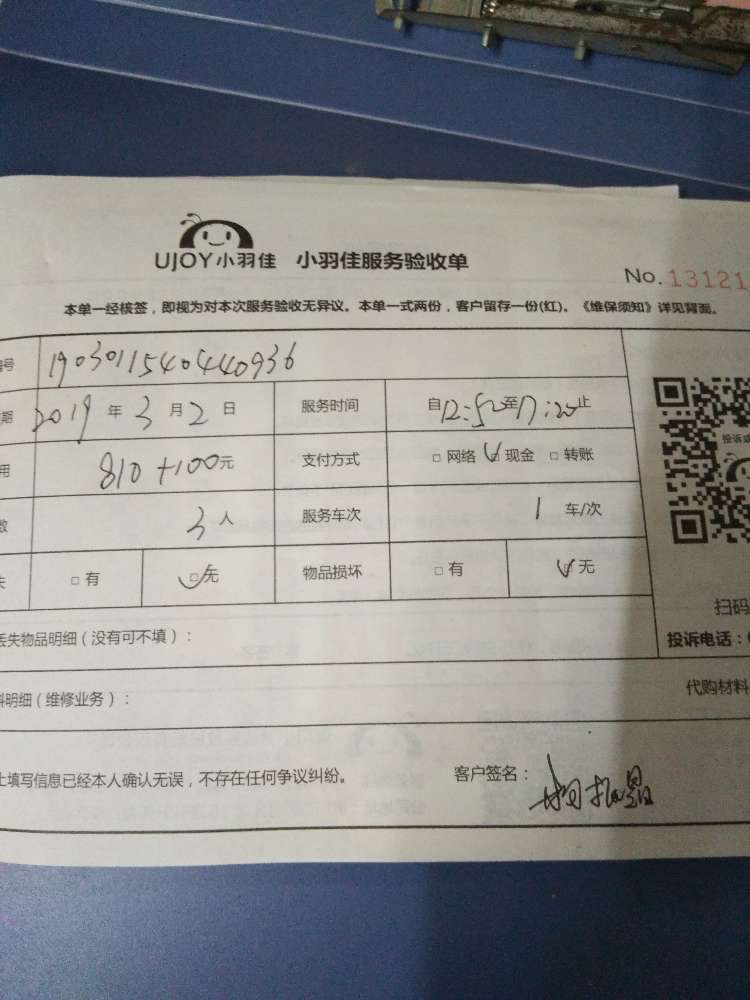 UJOY小羽佳 小羽佳服务验收单
No. 13121
本单一经核签，即视为对本次服务验收无异议。本单一式两份，客户留存一份(红)。《维保须知》详见背面。
编号 1903011540440936
期 2019 年 3 月 2 日 服务时间 自12:50至17:20止
用 810+100元 支付方式 □ 网络 □ 现金 □ 转账
数 3人 服务车次 1 车/次
失 □ 有 □ 无 物品损坏 □ 有 □ 无
投诉或
扫码
丢失物品明细（没有可不填）：
投诉电话：
料明细（维修业务）：
代购材料
上填写信息已经本人确认无误，不存在任何争议纠纷。 客户签名：